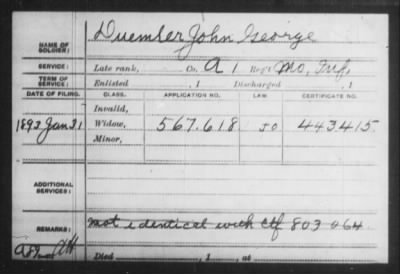 NAME OF SOLDIER: Duember John George
SERVICE: Late rank, Co. A 1 Reg't Mo. Inf.
TERM OF SERVICE: Enlisted , 1 Discharged , 1
DATE OF FILING. CLASS. APPLICATION NO. LAW CERTIFICATE NO.
Invalid,
1892 Jan 21 Widow, 567.618 443415
Minor,
ADDITIONAL SERVICES:
REMARKS: not identical with Ctf 803 064
Died , 1 , at